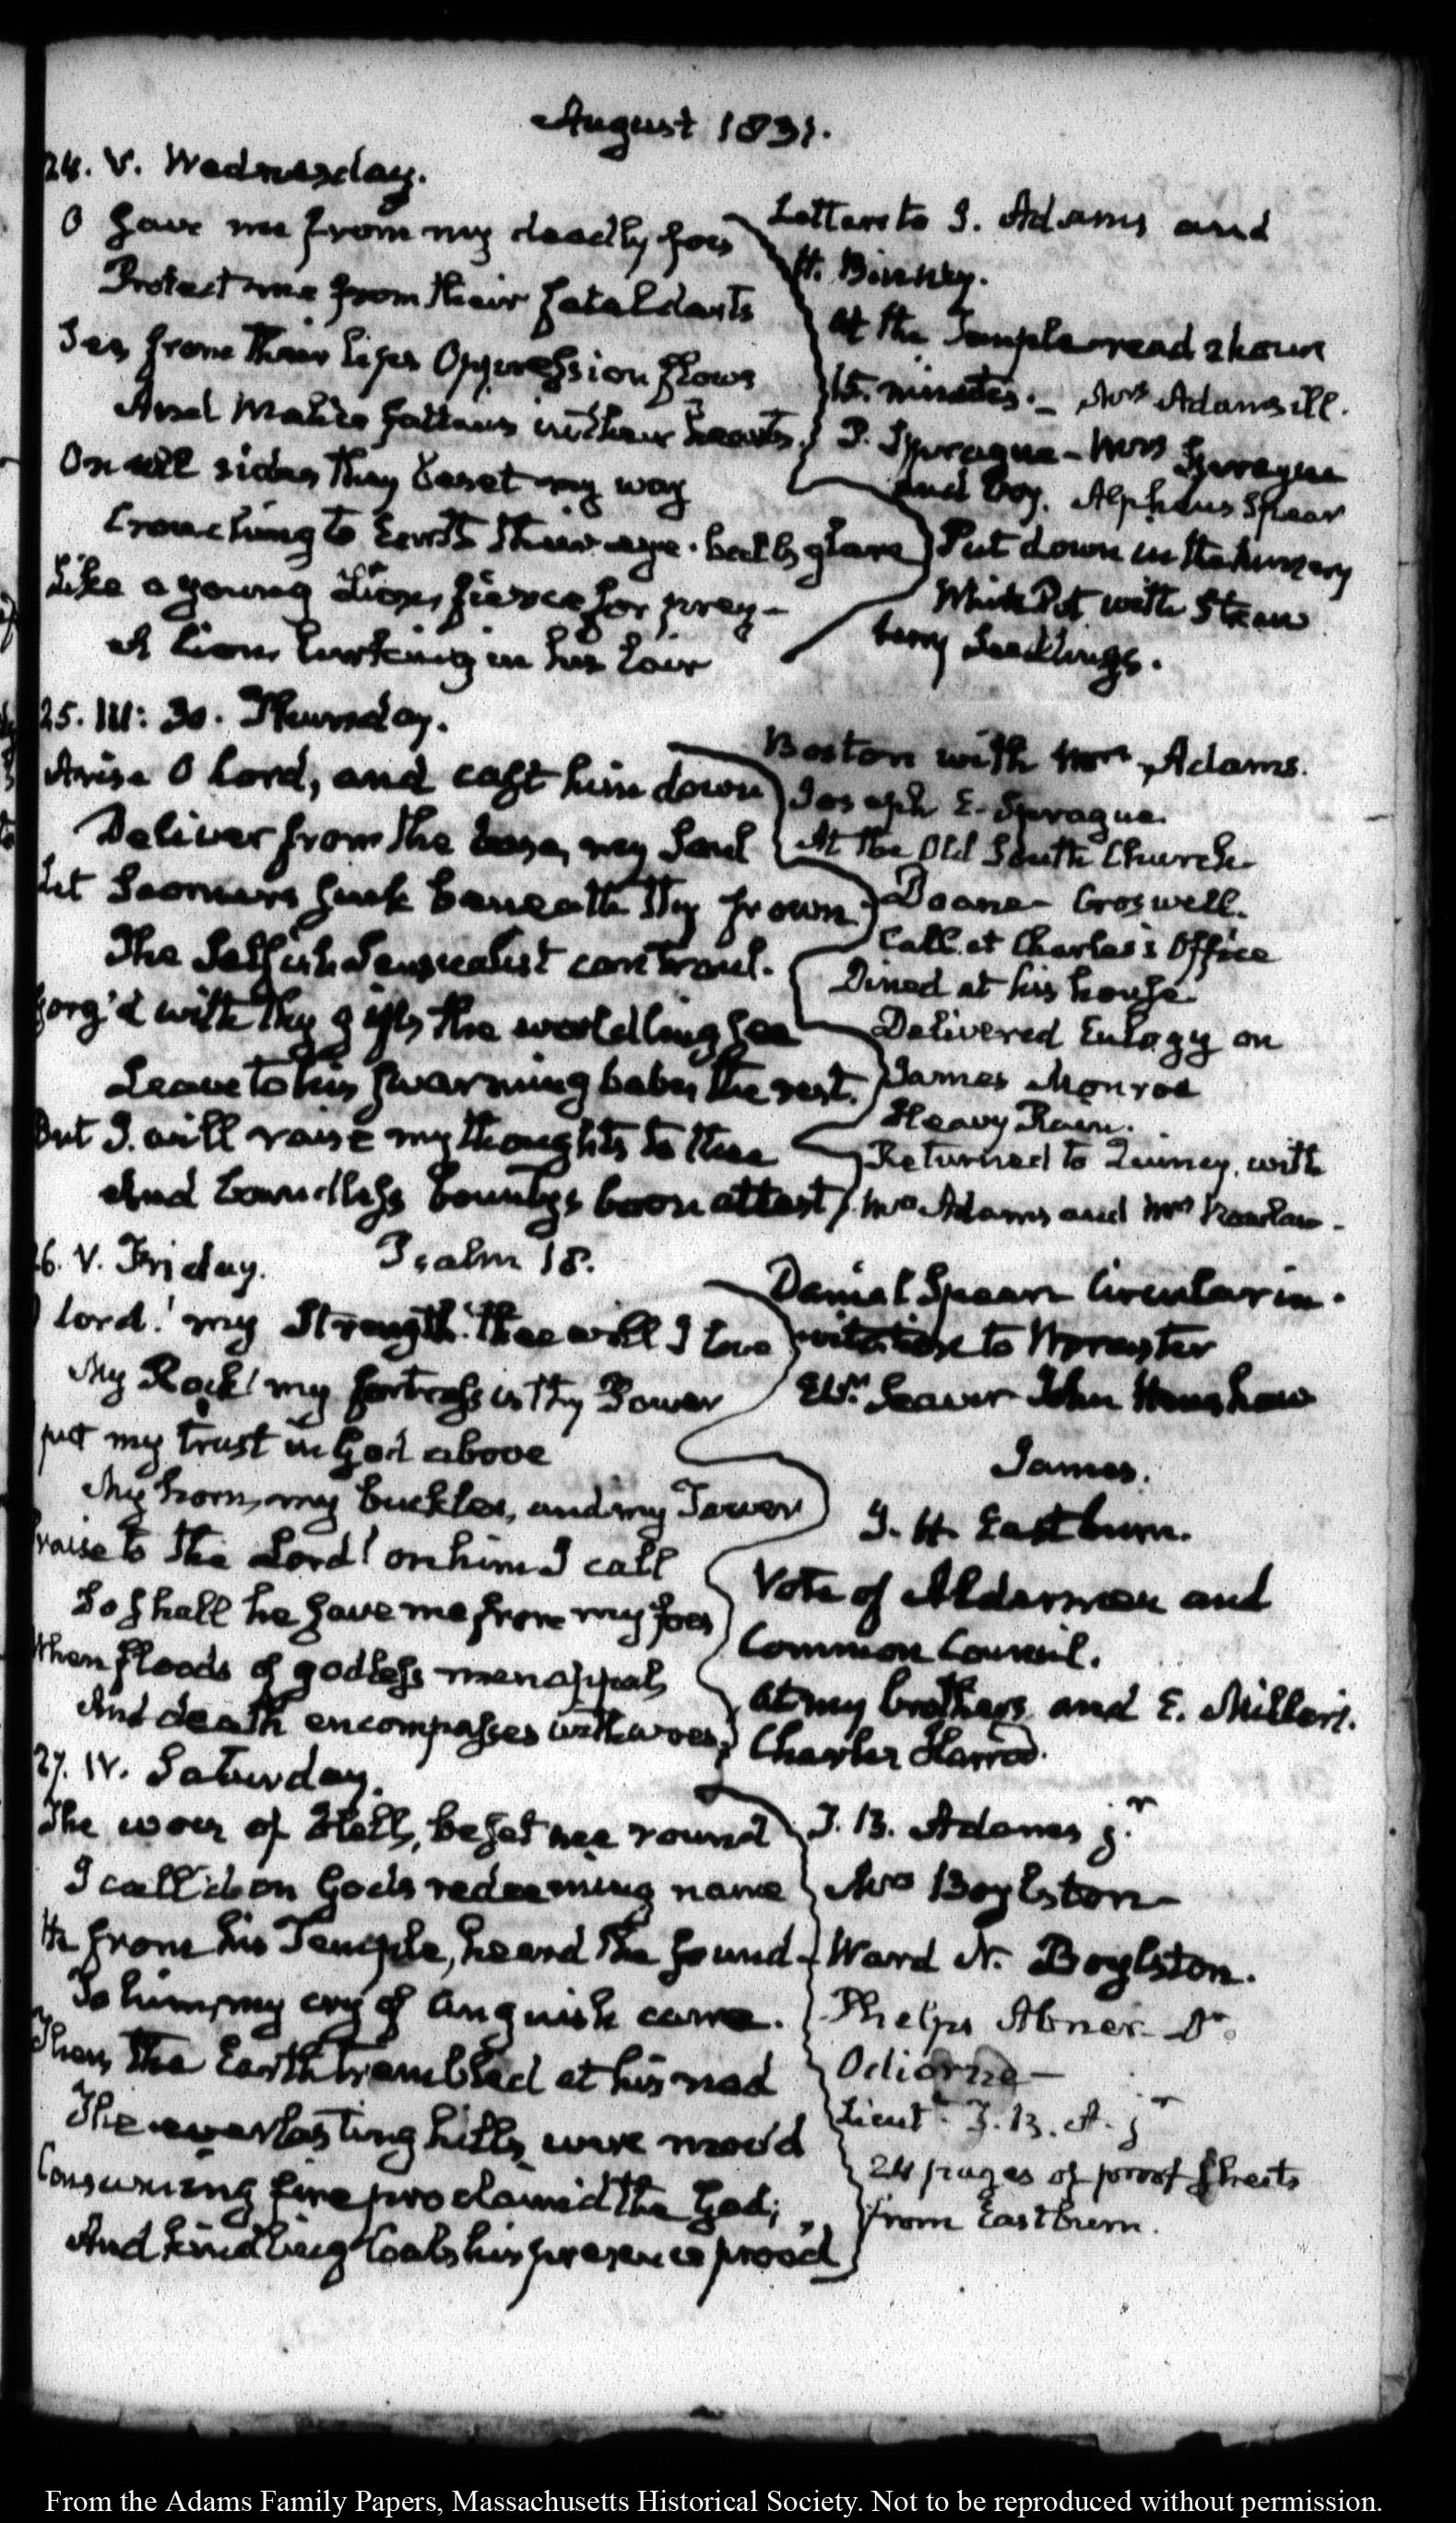 August 1831.
24. V. Wednesday.
O save me from my deadly foes
Protect me from their fatal darts
See, from their lips Oppression flows
And Malice fattens in their hearts.
On all sides they beset my way
Crouching to Earth their eye-balls glare
Like a young Lion, fierce for prey—
A Lion, lurking in his lair
Letters to J. Adams and
H. Binney.
At the Temple read 2 hours
15. minutes.— Mrs Adams ill.
P. Sprague— Mrs Sprague
and boy. Alpheus Spear
Put down in the Nursery
White Pot with Straw
berry Seedlings.
25. III: 30. Thursday.
Arise O Lord, and cast him down
Deliver from the base, my Soul
Let Scorners sink beneath thy frown
The Selfish Sensualist controul.
Gorg'd with thy gifts the worldling see
Leave to his swarming babes the rest.
But I will raise my thoughts to thee
And boundless bounty's boon attest
Boston with Mrs Adams.
Joseph E. Sprague.
At the Old South Church
Doane— Croswell.
Call at Charles's Office
Dined at his house
Delivered Eulogy on
James Monroe
Heavy Rain.
Returned to Quincy, with
Mrs Adams and Mrs
26. V. Friday. Psalm 18.
O Lord! my Strength! thee will I love
My Rock! my fortress is thy Power
put my trust in God above
My horn, my buckler, and my Tower
Praise to the Lord! on him I call
So shall he save me from my foes
When floods of godless men appal,
And death encompasses with woes,
Daniel Spear Circular in-
vitation to Worcester
Wm. Seaver John Henshaw
James.
J. H. Eastburn.
Vote of Aldermen and
Common Council.
At my brothers and E. Miller's.
Charles Harrod.
27. IV. Saturday.
The woes of Hell, beset me round
I call'd on Gods redeeming name
He from his Temple, heard the sound
To him, my cry of anguish came.
Then, the Earth trembled at his nod
The everlasting hills, were mov'd
Consuming fire proclaim'd the God;
And kindling Coals his presence prov'd
T. B. Adams jr.
Mrs Boylston—
Ward N. Boylston.
Phelps Abner— Dr.
Odiorne—
Lieutt. T. B. A. jr
24 pages of proof Sheets
from Eastburn.
From the Adams Family Papers, Massachusetts Historical Society. Not to be reproduced without permission.